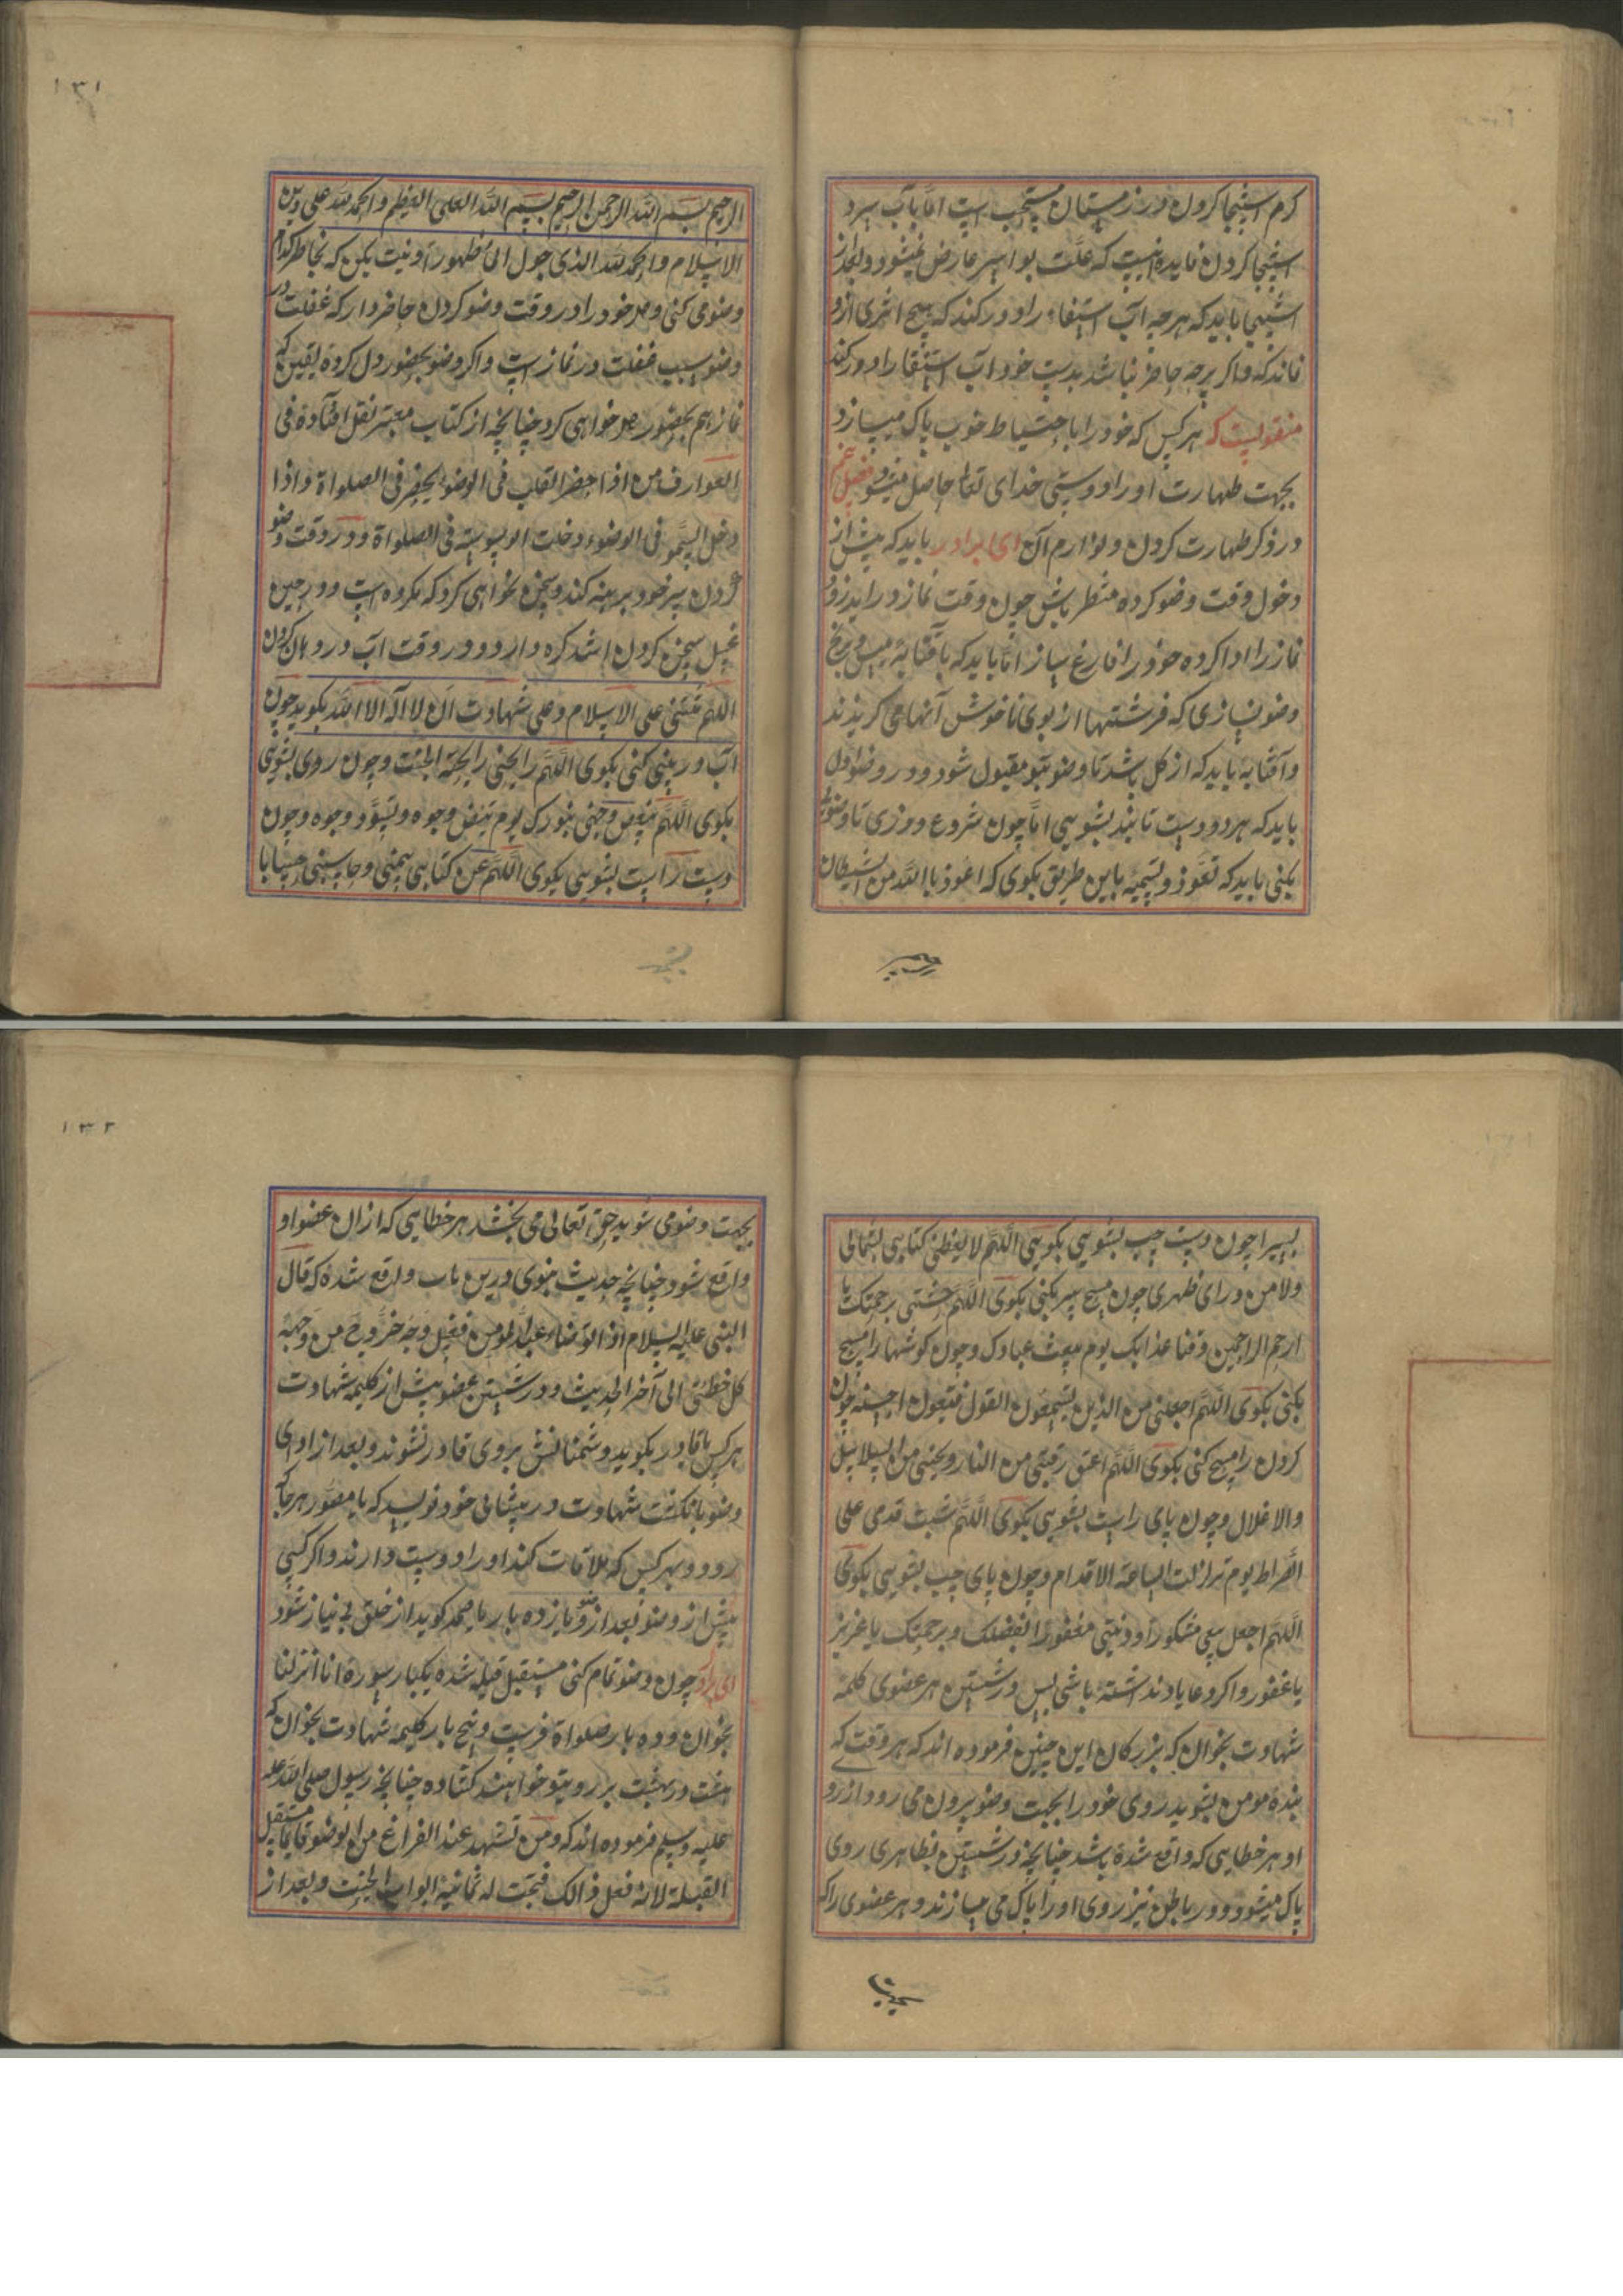 کرم استنجا کردن در زمستان مستحب است اما بآب سرد
استنجا کردن فایده اینست که علت بواسیر عارض نمیشود و بعد از
استنجا باید که هرچه آب استنقا را دور کند که هیچ اثری ازو
نماند که و اکر پرچه حاضر نباشد بدست خود آب استنقا را دور کند
منقولست که هر کس که خود را باحتیاط خوب پاک میسازد
بجهت طهارت او را دوستی خدای تعالی حاصل میشود فصل
در ذکر طهارت کردن و لوازم آن ای برادر باید که پیش از
دخول وقت وضو کرده منتظر باش چون وقت نماز در آید زود
نماز را ادا کرده خود را فارغ ساز اما باید که بآفتابه مس و برنج
وضو نسازی که فرشتها از بوی ناخوش آنها می کریزند
و آفتابه باید که از کل باشد تا وضو بتو مقبول شود و در وضو اول
باید که هر دو دست تا بند بشویی اما چون شروع در وضو
بکنی باید که تعوذ و تسمیه باین طریق بکوی که اعوذ باالله من الشیطان
الرجیم
۱۳۱
الرجیم بسم الله الرحمن الرحیم بسم الله العلی العظیم و الحمد لله علی دین
الاسلام و الحمد لله الذی جعل الماء طهورا و نیت بکن که بخاطر کدام
وضو می کنی و دل خود را در وقت وضو کردن حاضر دار که غفلت در
وضو سبب غفلت در نماز است و اکر وضو بحضور دل کرده یقین که
نماز هم بحضور دل خواهی کرد چنانچه از کتاب معتبر نقل افتاده فی
العوارف من اذا حضر القلب فی الوضو یحضر فی الصلواة و اذا
دخل السهو فی الوضوء دخلت الوسوسة فی الصلواة و در وقت وضو
کردن سر خود برهنه کند و سخن نخواهی کرد که مکروه است و در حین
غسل سخن کردن اشد کره دارد و در وقت آب در دهان کردن
اللهم ثبتنی علی الاسلام و علی شهادت ان لا اله الا الله بکوید چون
آب در بینی کنی بکوی اللهم رایحنی رایحة الجنت و چون روی بشویی
بکوی اللهم بیض وجهی بنورک یوم تبیض وجوه و تسود وجوه و چون
دست راست بشویی بکوی اللهم عن کتابی بیمنی و حاسبنی حسابا
بسیرا چون دست چپ بشویی بکویی اللهم لا یعطنی کتابی بشمالی
ولا من ورای ظهری چون مسح سر بکنی بکوی اللهم برحمتک یا
ارحم الراحمین و قنا عذابک یوم یبعث عبادک و چون کوشها را مسح
بکنی بکوی اللهم اجعلنی من الذین یستمعون القول فتبعون احسنه چون
کردن را مسح کنی بکوی اللهم اعتق رقبتی من النار و یحنبی من السلاسل
والاغلال و چون پای راست بشویی بکوی اللهم ثبت قدمی علی
الصراط یوم تزلزلت الساعة الاقدام و چون پای چپ بشویی بکوی
اللهم اجعل سعی مشکورا و ذنبی مغفورا بفضلک و برحمتک یا عزیز
یا غفور و اکر دعا یاد نداشته باشی پس در شستن هر عضوی کلمه
شهادت بخوان که بزرکان این چنین فرموده اند که هر وقت که
بنده مومن بشوید روی خود را بجهت وضو بیرون می رود از رو
او هر خطایی که واقع شده باشد چنانچه در شستن بظاهری روی
پاک میشود و در باطن نیز روی او را پاک می سازند و هر عضوی را که
بجهت
۱۳۲
بجهت وضو می شوید حق تعالی می بخشد هر خطایی که از ان عضو او
واقع شود چنانچه حدیث نبوی درین باب واقع شده که قال
النبی علیه السلام اذا توضاء عبد المومن فغسل وجه خروج من وجهه
کل خطئی الی آخر الحدیث و در شستن عضو پیش از کلیمه شهادت
هر کس یا قادر بکوید دشمنانش بر وی قادر نشوند و بعد از ادای
وضو بانکشت شهادت در پیشانی خود نویسد که یا مصور هر جا که
رود و بهر کس که ملاقات کند او را دوست دارند و اکر کسی
پیش از وضو بعد از وضو یازده بار یا صمد کوید از خلق بی نیاز شود
ای برادر چون وضو تمام کنی مستقبل قبله شده یکبار سورة انا انزلنا
بخوان و ده بار صلواة فرست و پنج بار کلیمه شهادت بخوان که
هشت در بهشت بر روی تو خواهند کشاده چنانچه رسول صلی الله علیه
علیه و سلم فرموده اند که و من تشهد عند الفراغ من الوضو قایما مستقبل
القبلة لانه فعل ذالک فتحت له ثمانیة ابواب الجنت و بعد از